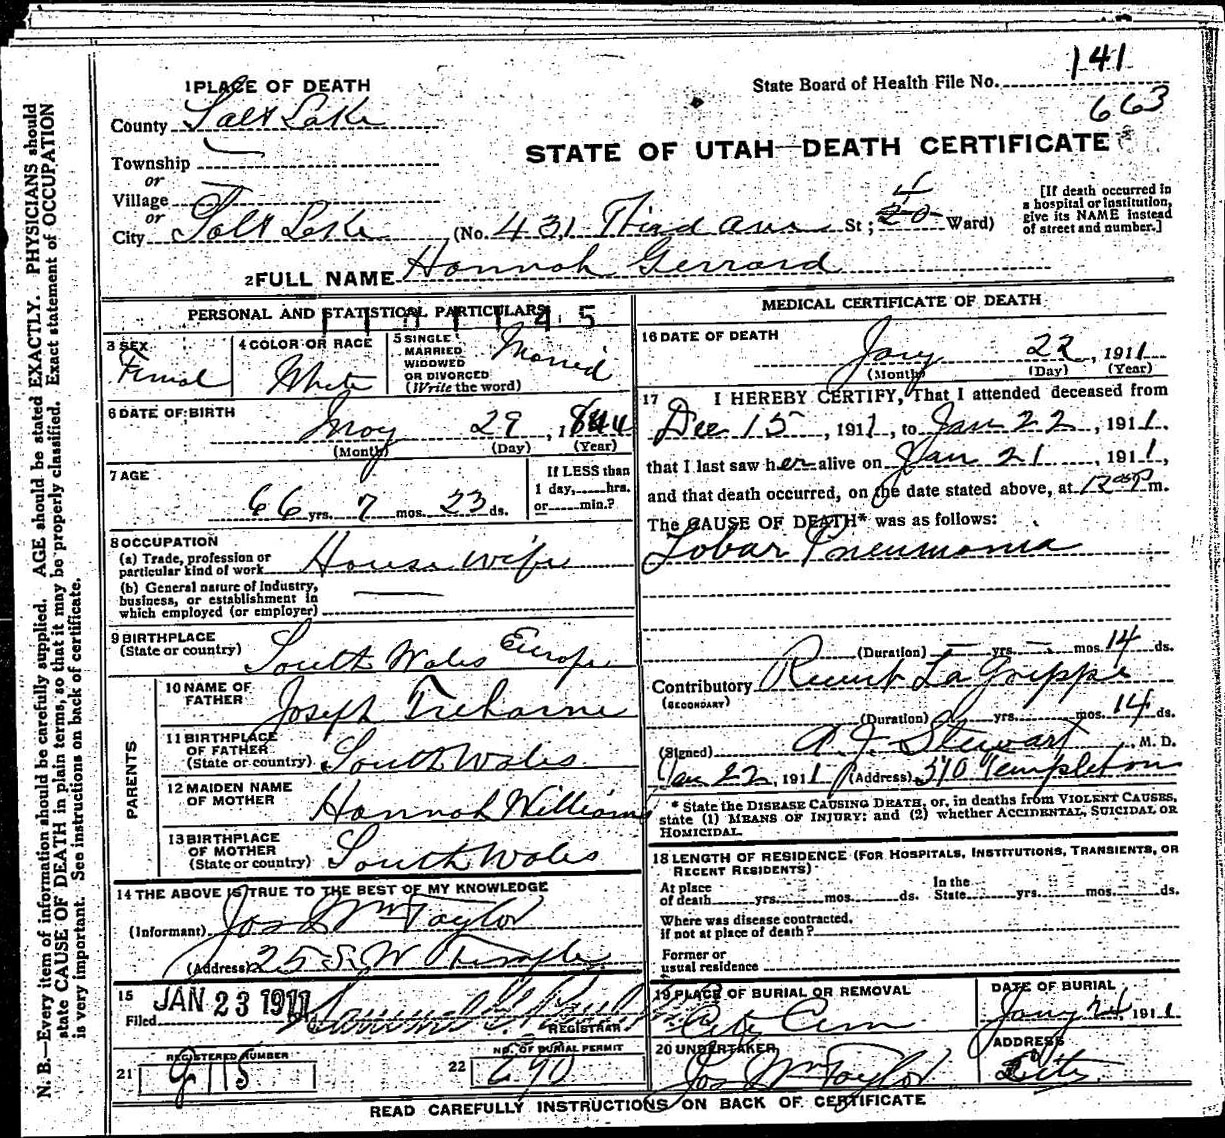 141
1 PLACE OF DEATH
State Board of Health File No.
663
County Salt Lake
STATE OF UTAH—DEATH CERTIFICATE
Township
or
Village
or
City Salt Lake (No. 431 Third Ave St; 4 20 Ward)
[If death occurred in a hospital or institution, give its NAME instead of street and number.]
2 FULL NAME Hannah Gerrard
PERSONAL AND STATISTICAL PARTICULARS
45
3 SEX
Femal
4 COLOR OR RACE
White
5 SINGLE MARRIED WIDOWED OR DIVORCED (Write the word)
Marrid
6 DATE OF BIRTH
May 29, 1844
(Month) (Day) (Year)
7 AGE
66 yrs. 7 mos. 23 ds.
If LESS than 1 day,......hrs. or......min.?
8 OCCUPATION
(a) Trade, profession or particular kind of work House wife
(b) General nature of Industry, business, or establishment in which employed (or employer)
9 BIRTHPLACE
(State or country) South Wales Europe
PARENTS
10 NAME OF FATHER Joseph Treharne
11 BIRTHPLACE OF FATHER (State or country) South Wales
12 MAIDEN NAME OF MOTHER Hannah Williams
13 BIRTHPLACE OF MOTHER (State or country) South Wales
14 THE ABOVE IS TRUE TO THE BEST OF MY KNOWLEDGE
(Informant) Jos Wm Taylor
(Address) 25 S. W Temple
15
Filed JAN 23 1911
REGISTRAR
21 REGISTERED NUMBER
22 NO. OF BURIAL PERMIT
690
MEDICAL CERTIFICATE OF DEATH
16 DATE OF DEATH
Jany 22, 1911
(Month) (Day) (Year)
17 I HEREBY CERTIFY, That I attended deceased from
Dec 15, 1911, to Jan 22, 1911.
that I last saw her alive on Jan 21, 1911,
and that death occurred, on the date stated above, at 12 m.
The CAUSE OF DEATH* was as follows:
Lobar Pneumonia
(Duration) — yrs. — mos. 14 ds.
Contributory Recent La Grippe
(SECONDARY)
(Duration) yrs. mos. 14 ds.
(Signed) A. J. Stewart, M. D.
Jan 22, 1911 (Address) 340 Templeton
* State the DISEASE CAUSING DEATH, or, in deaths from VIOLENT CAUSES,
state (1) MEANS OF INJURY; and (2) whether ACCIDENTAL, SUICIDAL OR
HOMICIDAL.
18 LENGTH OF RESIDENCE (FOR HOSPITALS, INSTITUTIONS, TRANSIENTS, OR
RECENT RESIDENTS)
At place of death yrs. mos. ds. In the State yrs. mos. ds.
Where was disease contracted,
if not at place of death?
Former or
usual residence
19 PLACE OF BURIAL OR REMOVAL
City Cem
DATE OF BURIAL
Jany 24 1911
20 UNDERTAKER
Jos Wm Taylor
ADDRESS
City
READ CAREFULLY INSTRUCTIONS ON BACK OF CERTIFICATE
N. B.—Every item of information should be carefully supplied. AGE should be stated EXACTLY. PHYSICIANS should
state CAUSE OF DEATH in plain terms, so that it may be properly classified. Exact statement of OCCUPATION
is very important. See instructions on back of certificate.